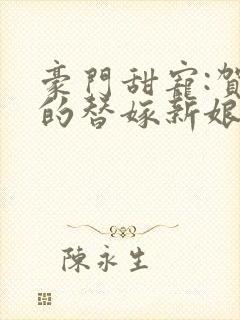 豪門甜寵:賀
的替嫁新娘
陳永生